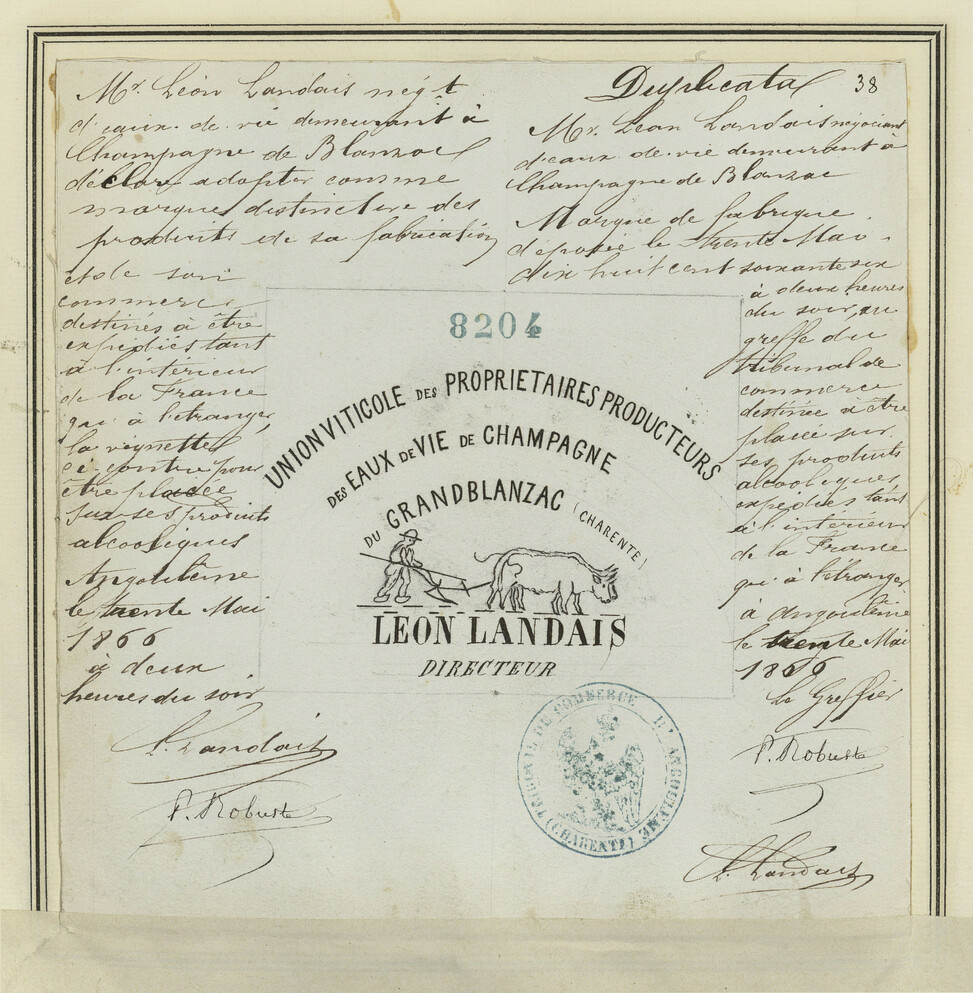 Mr. Léon Landais négt
d'eaux de vie demeurant à
Champagne de Blanzac
déclare adopter comme
marque distinctive des
produits de sa fabrication
et de son
commerce
destinés à être
expédiés tant
à l'intérieur
de la France
qu'à l'étranger,
la vignette
ci-contre pour
être placée
sur ses produits
alcooliques
Angoulême
le trente Mai
1866
à deux
heures du soir
L. Landais
P. Robuste
Duplicata
38
Mr. Léon Landais négociant
d'eaux de vie demeurant à
Champagne de Blanzac
Marque de fabrique
déposée le trente Mai
dix huit cent soixante six
à deux heures
du soir, au
greffe du
tribunal de
commerce
destinée à être
placée sur
ses produits
alcooliques
expédiés tant
à l'intérieur
de la France
qu'à l'étranger
à Angoulême
le trente Mai
1866
Le Greffier
P. Robuste
L. Landais
8204
UNION VITICOLE DES PROPRIETAIRES PRODUCTEURS
DES EAUX DE VIE DE CHAMPAGNE
DU GRAND BLANZAC (CHARENTE)
LEON LANDAIS
DIRECTEUR
TRIBUNAL DE COMMERCE D'ANGOULEME
(CHARENTE)